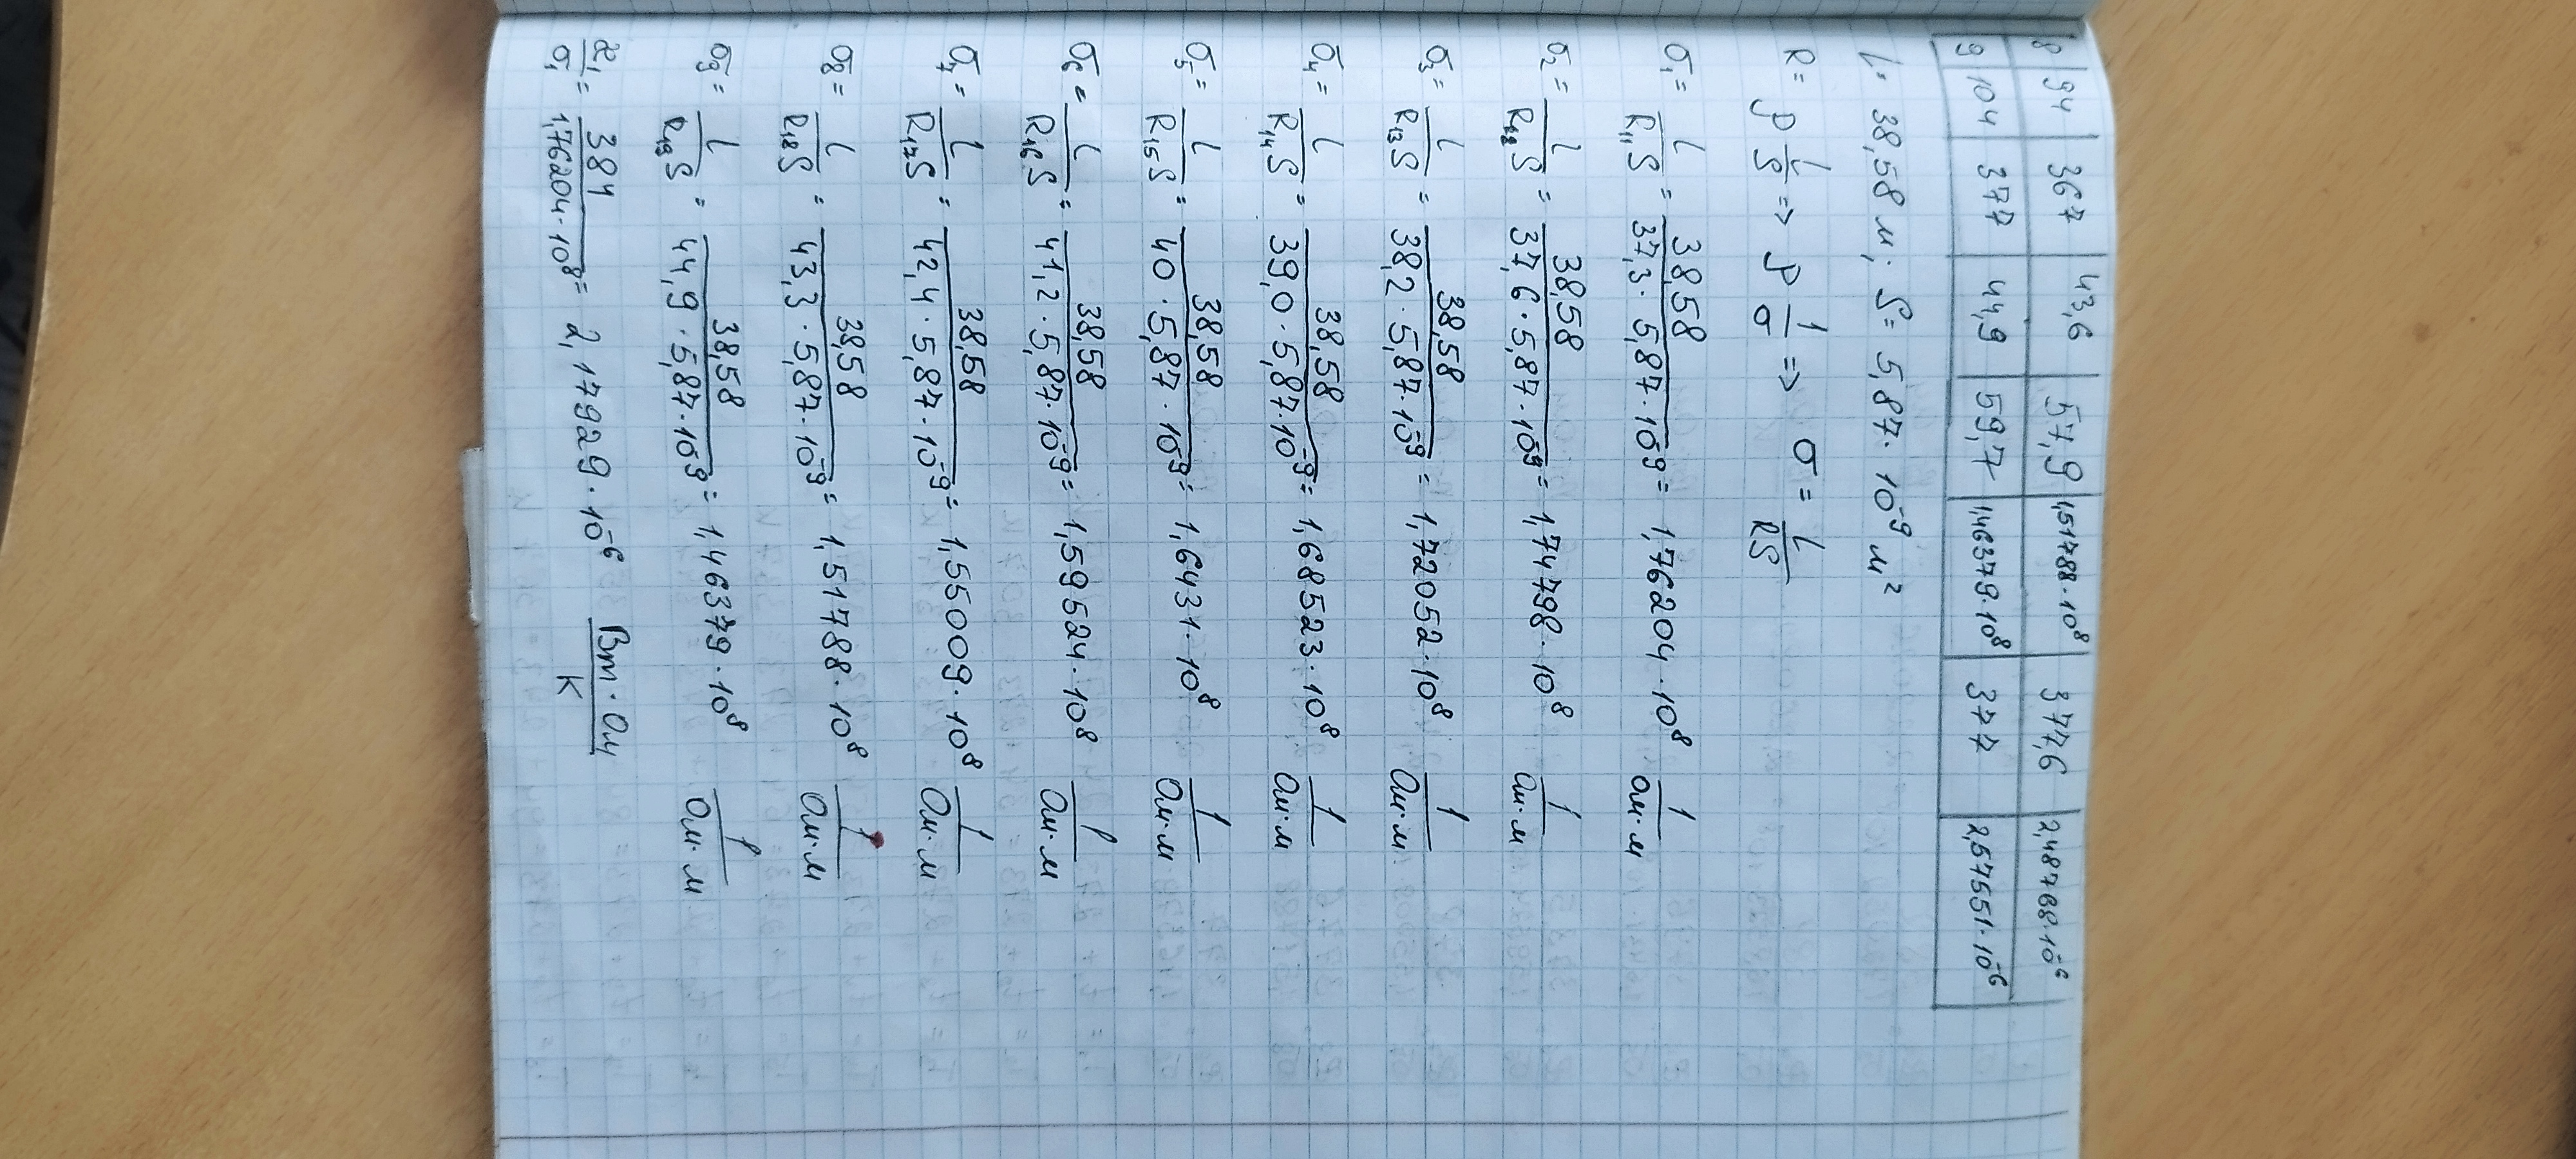 8 94 367 43,6 57,9 1,51788·10⁸ 377,6 2,48768·10⁻⁶
9 104 377 44,9 59,7 1,46379·10⁸ 377 2,57551·10⁻⁶
L= 38,58 м; S= 5,87·10⁻⁹ м²
R= ρ L/S => ρ 1/σ => σ = L/RS
σ₁= L/R₁₁S = 38,58/37,3·5,87·10⁻⁹ = 1,76204·10⁸ 1/Ом·м
σ₂= L/R₁₂S = 38,58/37,6·5,87·10⁻⁹ = 1,74798·10⁸ 1/Ом·м
σ₃= L/R₁₃S = 38,58/38,2·5,87·10⁻⁹ = 1,72052·10⁸ 1/Ом·м
σ₄= L/R₁₄S = 38,58/39,0·5,87·10⁻⁹ = 1,68523·10⁸ 1/Ом·м
σ₅= L/R₁₅S = 38,58/40·5,87·10⁻⁹ = 1,6431·10⁸ 1/Ом·м
σ₆= L/R₁₆S = 38,58/41,2·5,87·10⁻⁹ = 1,59524·10⁸ 1/Ом·м
σ₇= L/R₁₇S = 38,58/42,4·5,87·10⁻⁹ = 1,55009·10⁸ 1/Ом·м
σ₈= L/R₁₈S = 38,58/43,3·5,87·10⁻⁹ = 1,51788·10⁸ 1/Ом·м
σ₉= L/R₁₉S = 38,58/44,9·5,87·10⁻⁹ = 1,46379·10⁸ 1/Ом·м
æ₁/σ₁ = 384/1,76204·10⁸ = 2,17929·10⁻⁶ Вт·Ом/К